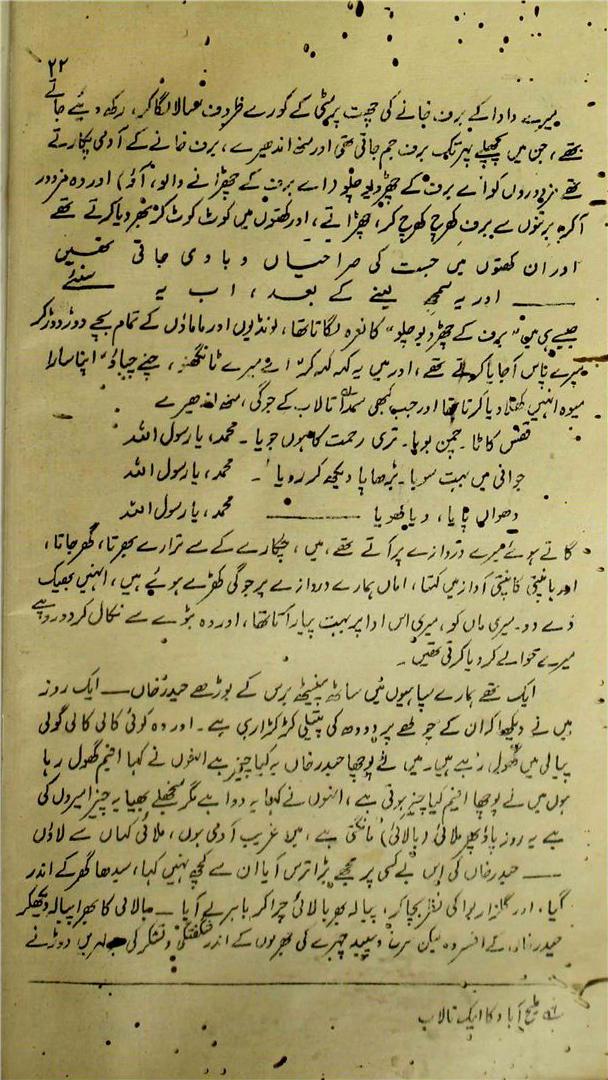 ۲۲
میرے دادا کے برف خانے کی چھت پر مٹی کے کورے ظروف نہالا لگا کر، رکھ دیئے جاتے
تھے، جن میں پچھلے پہر تک برف جم جاتی تھی اور منہ اندھیرے، برف خانے کے آدمی پکارتے
تھے مزدوروں کو "اے برف کے چھڑویو چلو (اے برف کے چھڑانے والو، آؤ) اور وہ مزدور
آکر، برتنوں سے برف کھرچ کھرچ کر، چھڑاتے، اور کھتوں میں کوٹ کوٹ کر بھر دیا کرتے تھے
اور ان کھتوں میں جست کی صراحیاں دبا دی جاتی تھیں
—— اور یہ سمجھ لینے کے بعد، اب یہ سنئے
جیسے ہی میں "برف کے چھڑویو چلو" کا نعرہ لگاتا تھا، لونڈیوں اور ماماؤں کے تمام بچے دوڑ دوڑ کر
میرے پاس آ جایا کرتے تھے، اور میں یہ کہہ کہہ کر "اے میرے ٹانگھنو، چنے چباؤ" اپنا سارا
میوہ انہیں کھلا دیا کرتا تھا اور جب کبھی تالاب کے جوگی، منہ اندھیرے
قفس کاٹا۔ چمن بویا۔ تری رحمت کا ہوں جویا۔ محمد، یا رسول اللہ
جوانی میں بہت سویا۔ بڑھاپا دیکھ کر رویا۔ محمد، یا رسول اللہ
دھواں پایا، دیا کھویا —— محمد، یا رسول اللہ
گاتے ہوئے میرے دروازے پر آتے تھے، میں، چکارے کے سے ترارے بھرتا، گھر جاتا،
اور ہانپتی کانپتی آواز میں کہتا، اماں ہمارے دروازے پر جوگی کھڑے ہوئے ہیں، انہیں بھیک
دے دو۔ میری ماں کو، میری اس ادا پر بہت پیار آتا تھا، اور وہ بٹوے سے نکال کر دو روپے
میرے حوالے کر دیا کرتی تھیں۔
ایک تھے ہمارے سپاہیوں میں ساٹھ پینسٹھ برس کے بوڑھے حیدر خاں —— ایک روز
میں نے دیکھا کہ ان کے چولھے پر دودھ کی پتیلی کڑکڑا رہی ہے۔ اور وہ کوئی کالی کالی گولی
پیالی میں گھول رہے ہیں۔ میں نے پوچھا حیدر خاں یہ کیا چیز ہے انہوں نے کہا افیم گھول رہا
ہوں میں نے پوچھا افیم کیا چیز ہوتی ہے، انہوں نے کہا یہ دوا ہے مگر منجھلے بھیا یہ چیز امیروں کی
ہے یہ روز پاؤ بھر ملائی (بالائی) مانگتی ہے، میں غریب آدمی ہوں، ملائی کہاں سے لاؤں
—— حیدر خاں کی اس بے کسی پر مجھے بڑا ترس آیا ان سے کچھ نہیں کہا، سیدھا گھر کے اندر
گیا، اور گلزار بوا کی نظر بچا کر، پیالہ بھر بالائی چرا کر باہر لے آیا —— بالائی کا بھرا پیالہ دیکھ کر
حیدر خاں کے افسردہ لیکن سرخ و سپید چہرے کی جھریوں کے اندر شگفتگی و تشکر کی لہریں دوڑنے
ملیح آباد کا ایک تالاب